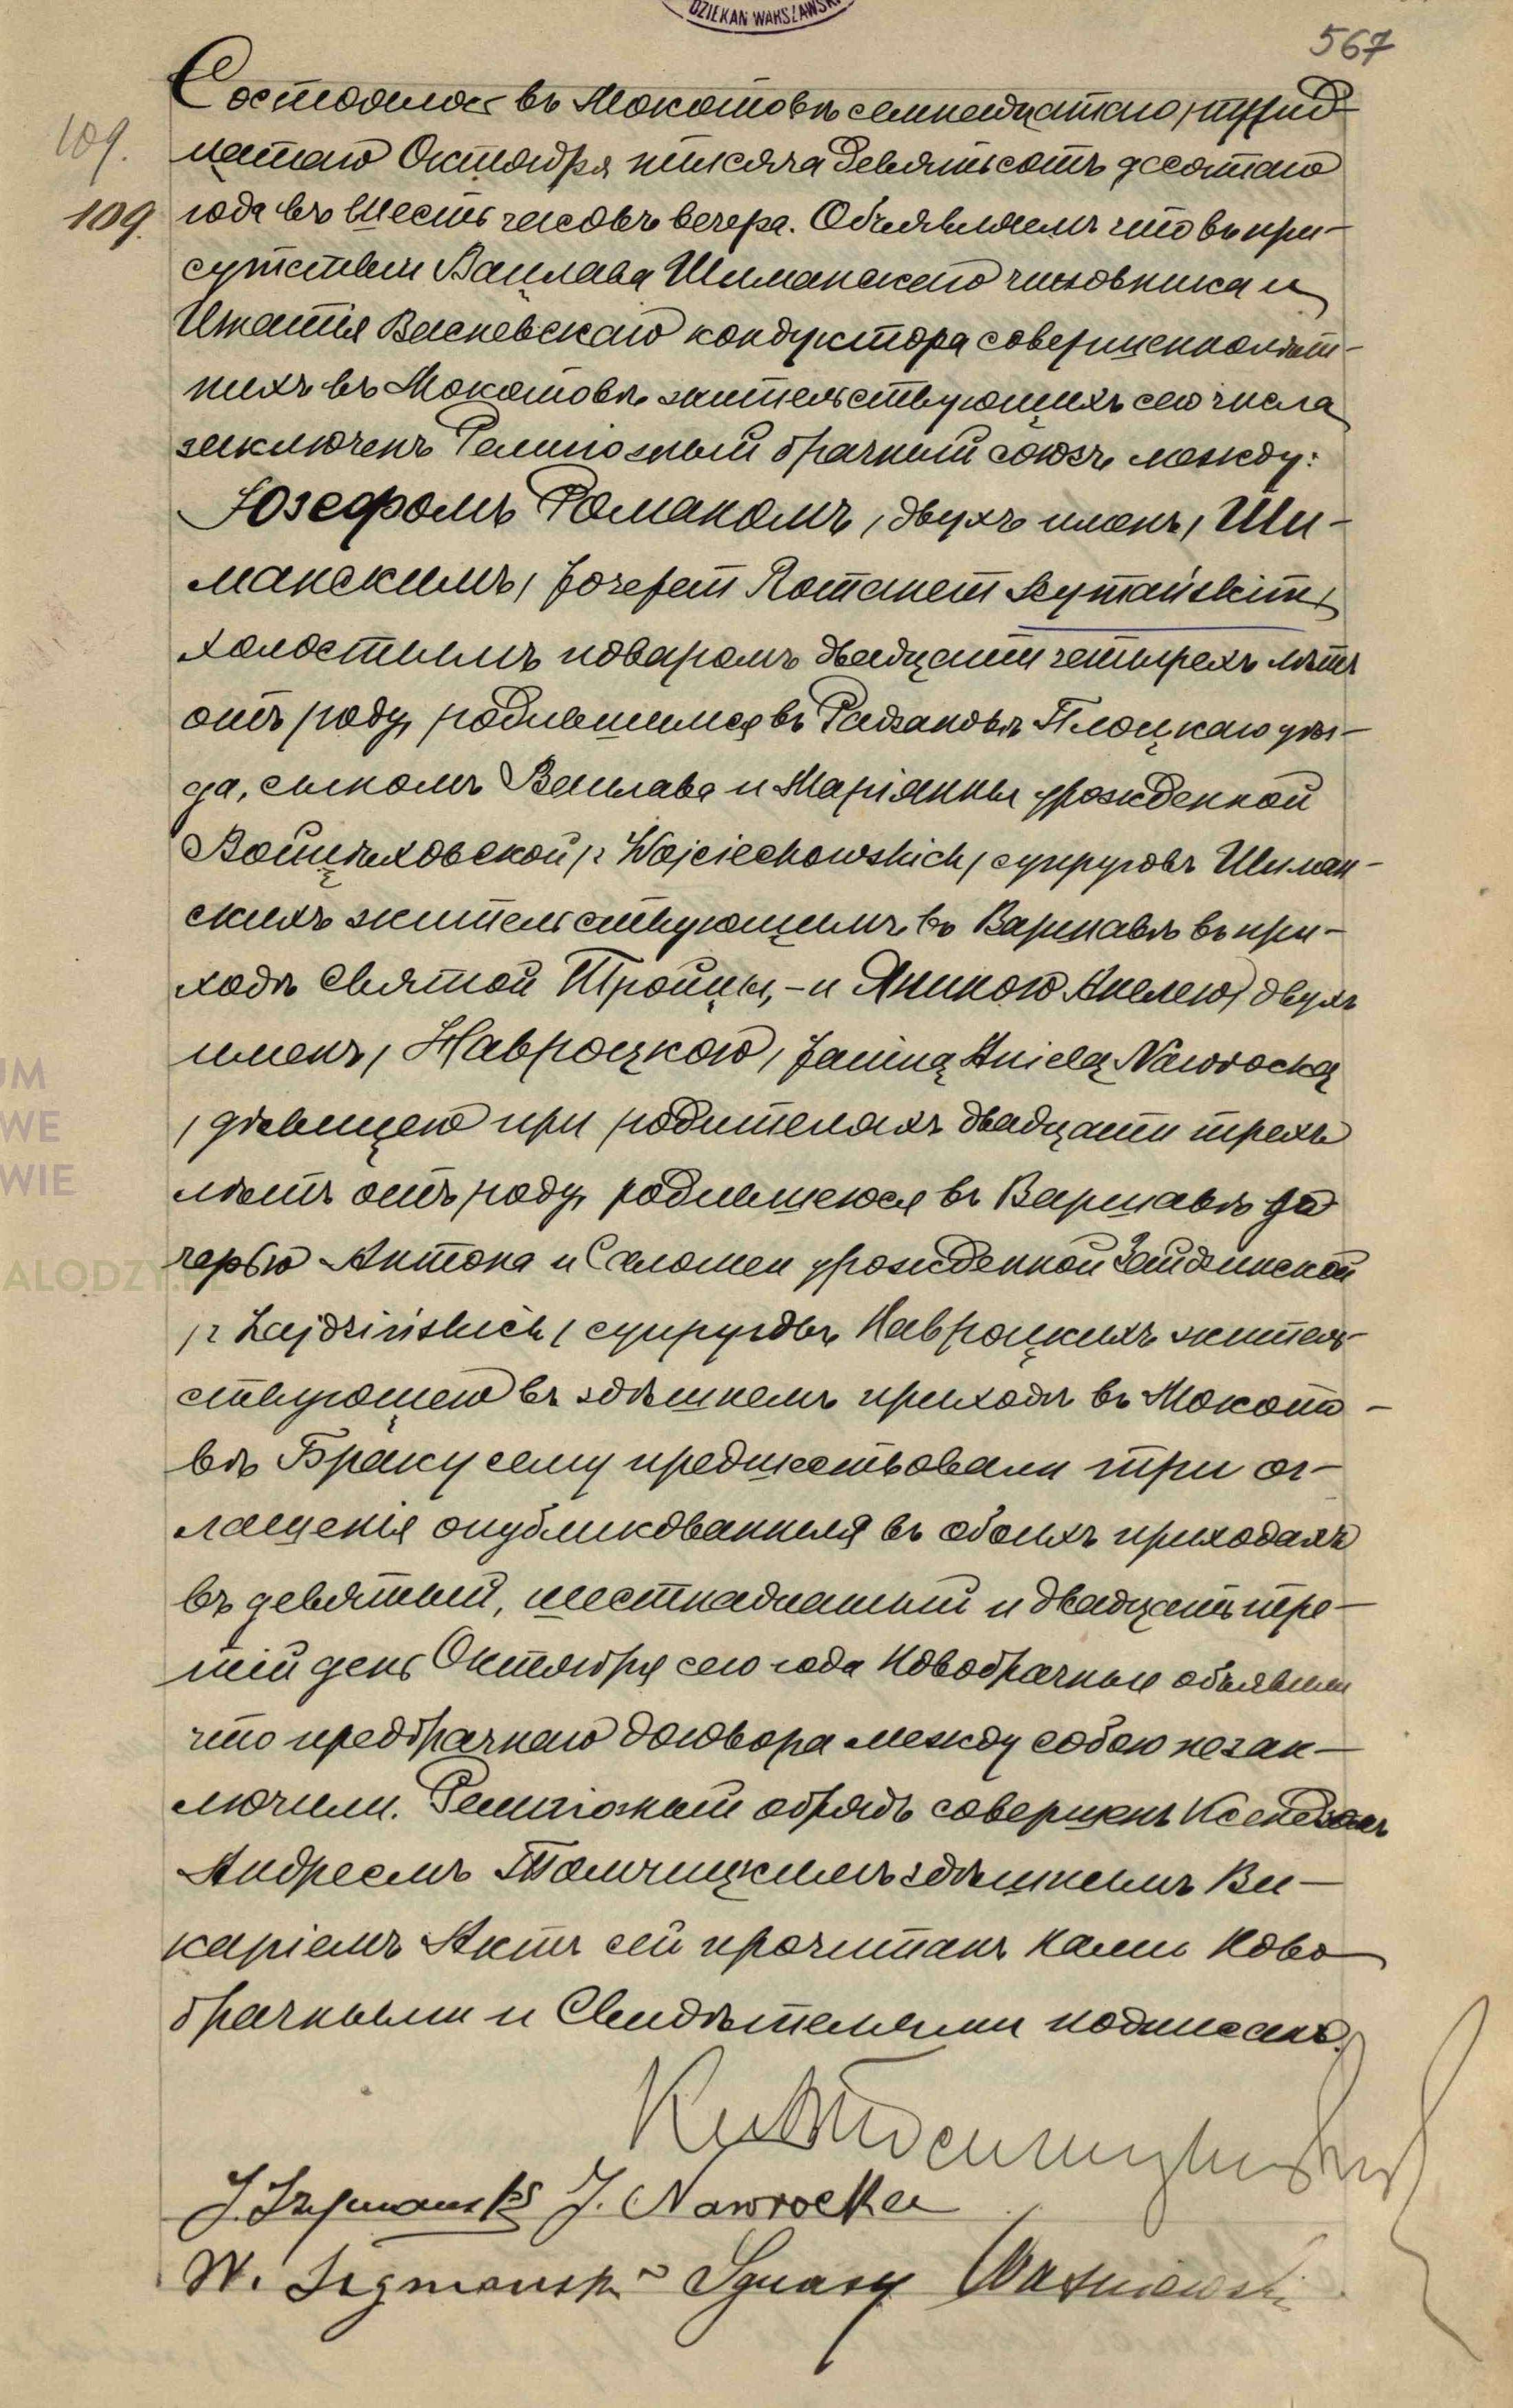 DZIEKAN WARSZAWSKI
567
Состоялось въ Мокотовѣ семнадцатаго /трид-
109.
цатаго Октября тысяча девятьсотъ десятаго
109. года въ шесть часовъ вечера. Объявляемъ что въ при-
сутствіи Вацлава Шиманскаго чиновника и
Игнатія Васневскаго кондуктора совершеннолѣт-
нихъ въ Мокотовѣ жительствующихъ сего числа
заключенъ Религіозный брачный союзъ между:
Юзефомъ Романомъ, /двухъ именъ/ Ши-
манскимъ, /Józefem Romanem Szymańskim/
холостымъ поваромъ двадцати четырехъ лѣтъ
отъ роду, родившимся въ Радзановѣ Плоцкаго уѣз-
да, сыномъ Вацлава и Маріанны урожденной
Войцѣховской /z Wojciechowskich/ супруговъ Шиман-
скихъ жительствующимъ въ Варшавѣ въ при-
ходѣ Святой Троицы,- и Яниною Анелею/ двухъ
именъ/ Навроцкою /Janiną Anielą Nawrocką
/ дѣвицею при родителяхъ двадцати трехъ
лѣтъ отъ роду, родившеюся въ Варшавѣ до
черью Антона и Саломеи урожденной Зайдзинской
/z Zajdzińskich/ супруговъ Навроцкихъ житель-
ствующею въ здѣшнемъ приходѣ въ Мокото-
вѣ Браку сему предшествовали три ог-
лашенія опубликованныя въ обоихъ приходахъ
въ девятый, шестнадцатый и двадцать тре-
тій день Октября сего года Новобрачные объявили
что предбрачнаго договора между собою незак-
лючили. Религіозный обрядъ совершенъ Ксендзомъ
Андреемъ Томчицкимъ здѣшнимъ Ви-
каріемъ Актъ сей прочитанъ нами Ново
брачными и Свидѣтелями подписанъ.
J. Szymański J. Nawrocka
W. Szymański Ignacy Waśniewski